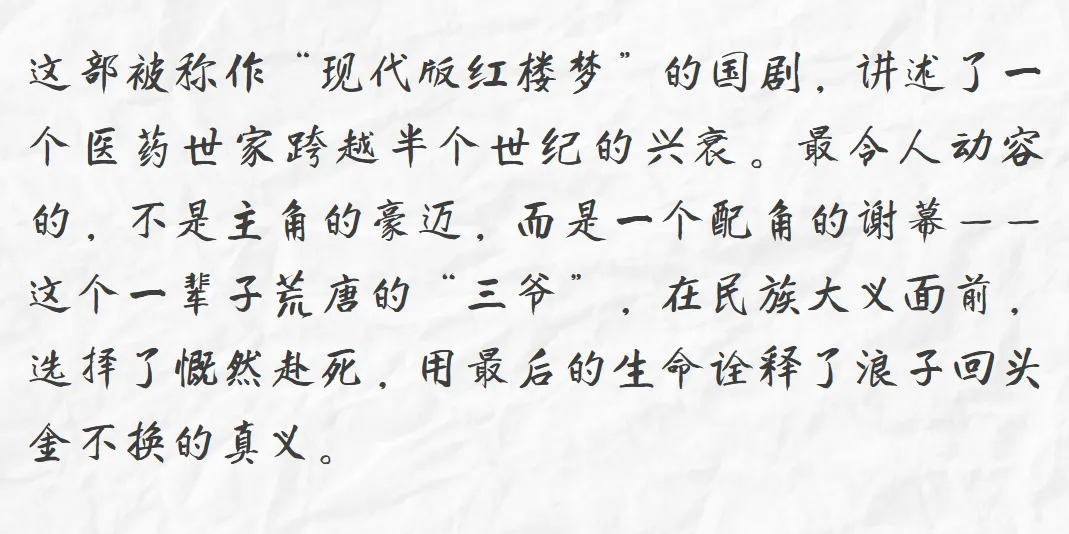 这部被称作“现代版红楼梦”的国剧，讲述了一
个医药世家跨越半个世纪的兴衰。最令人动容
的，不是主角的豪迈，而是一个配角的谢幕——
这个一辈子荒唐的“三爷”，在民族大义面前，
选择了慨然赴死，用最后的生命诠释了浪子回头
金不换的真义。